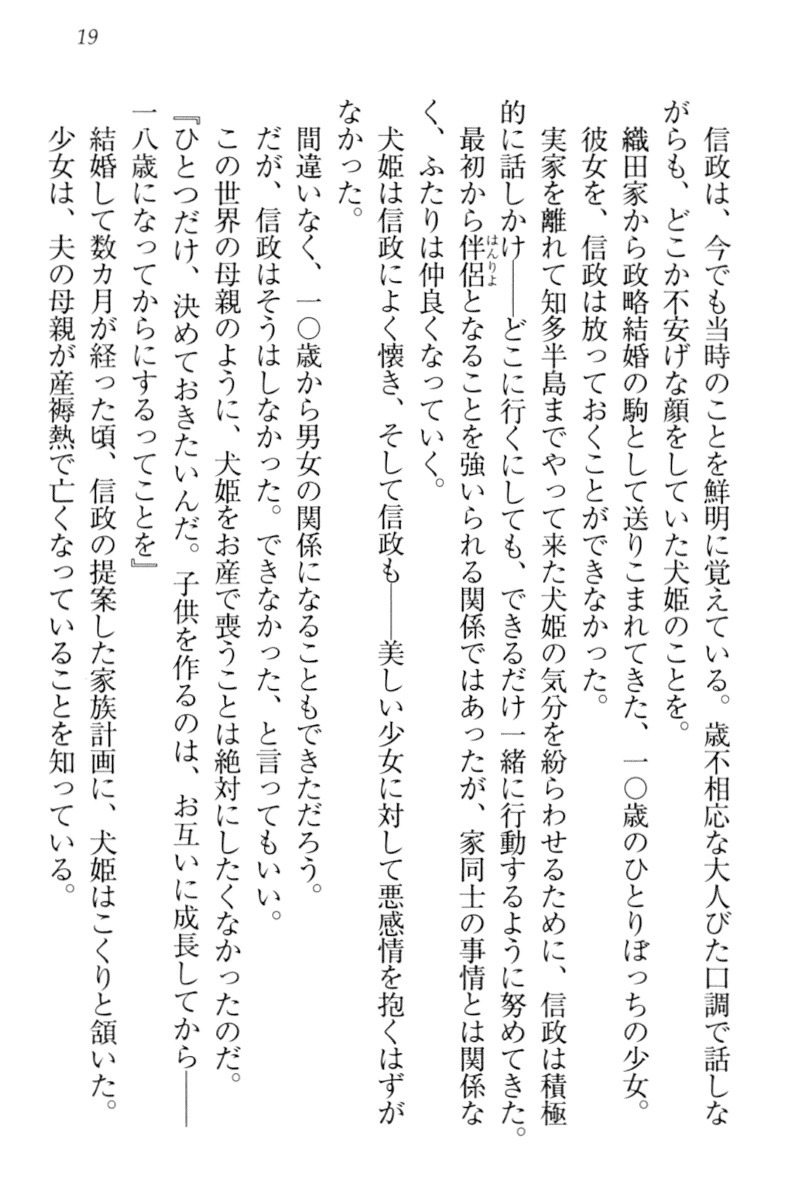 19
信政は、今でも当時のことを鮮明に覚えている。歳不相応な大人びた口調で話しな
がらも、どこか不安げな顔をしていた犬姫のことを。
織田家から政略結婚の駒として送りこまれてきた、一〇歳のひとりぼっちの少女。
彼女を、信政は放っておくことができなかった。
実家を離れて知多半島までやって来た犬姫の気分を紛らわせるために、信政は積極
的に話しかけ――どこに行くにしても、できるだけ一緒に行動するように努めてきた。
最初から伴侶となることを強いられる関係ではあったが、家同士の事情とは関係な
はんりよ
く、ふたりは仲良くなっていく。
犬姫は信政によく懐き、そして信政も――美しい少女に対して悪感情を抱くはずが
なかった。
間違いなく、一〇歳から男女の関係になることもできただろう。
だが、信政はそうはしなかった。できなかった、と言ってもいい。
この世界の母親のように、犬姫をお産で喪うことは絶対にしたくなかったのだ。
『ひとつだけ、決めておきたいんだ。子供を作るのは、お互いに成長してから――
一八歳になってからにするってことを』
結婚して数カ月が経った頃、信政の提案した家族計画に、犬姫はこくりと頷いた。
少女は、夫の母親が産褥熱で亡くなっていることを知っている。